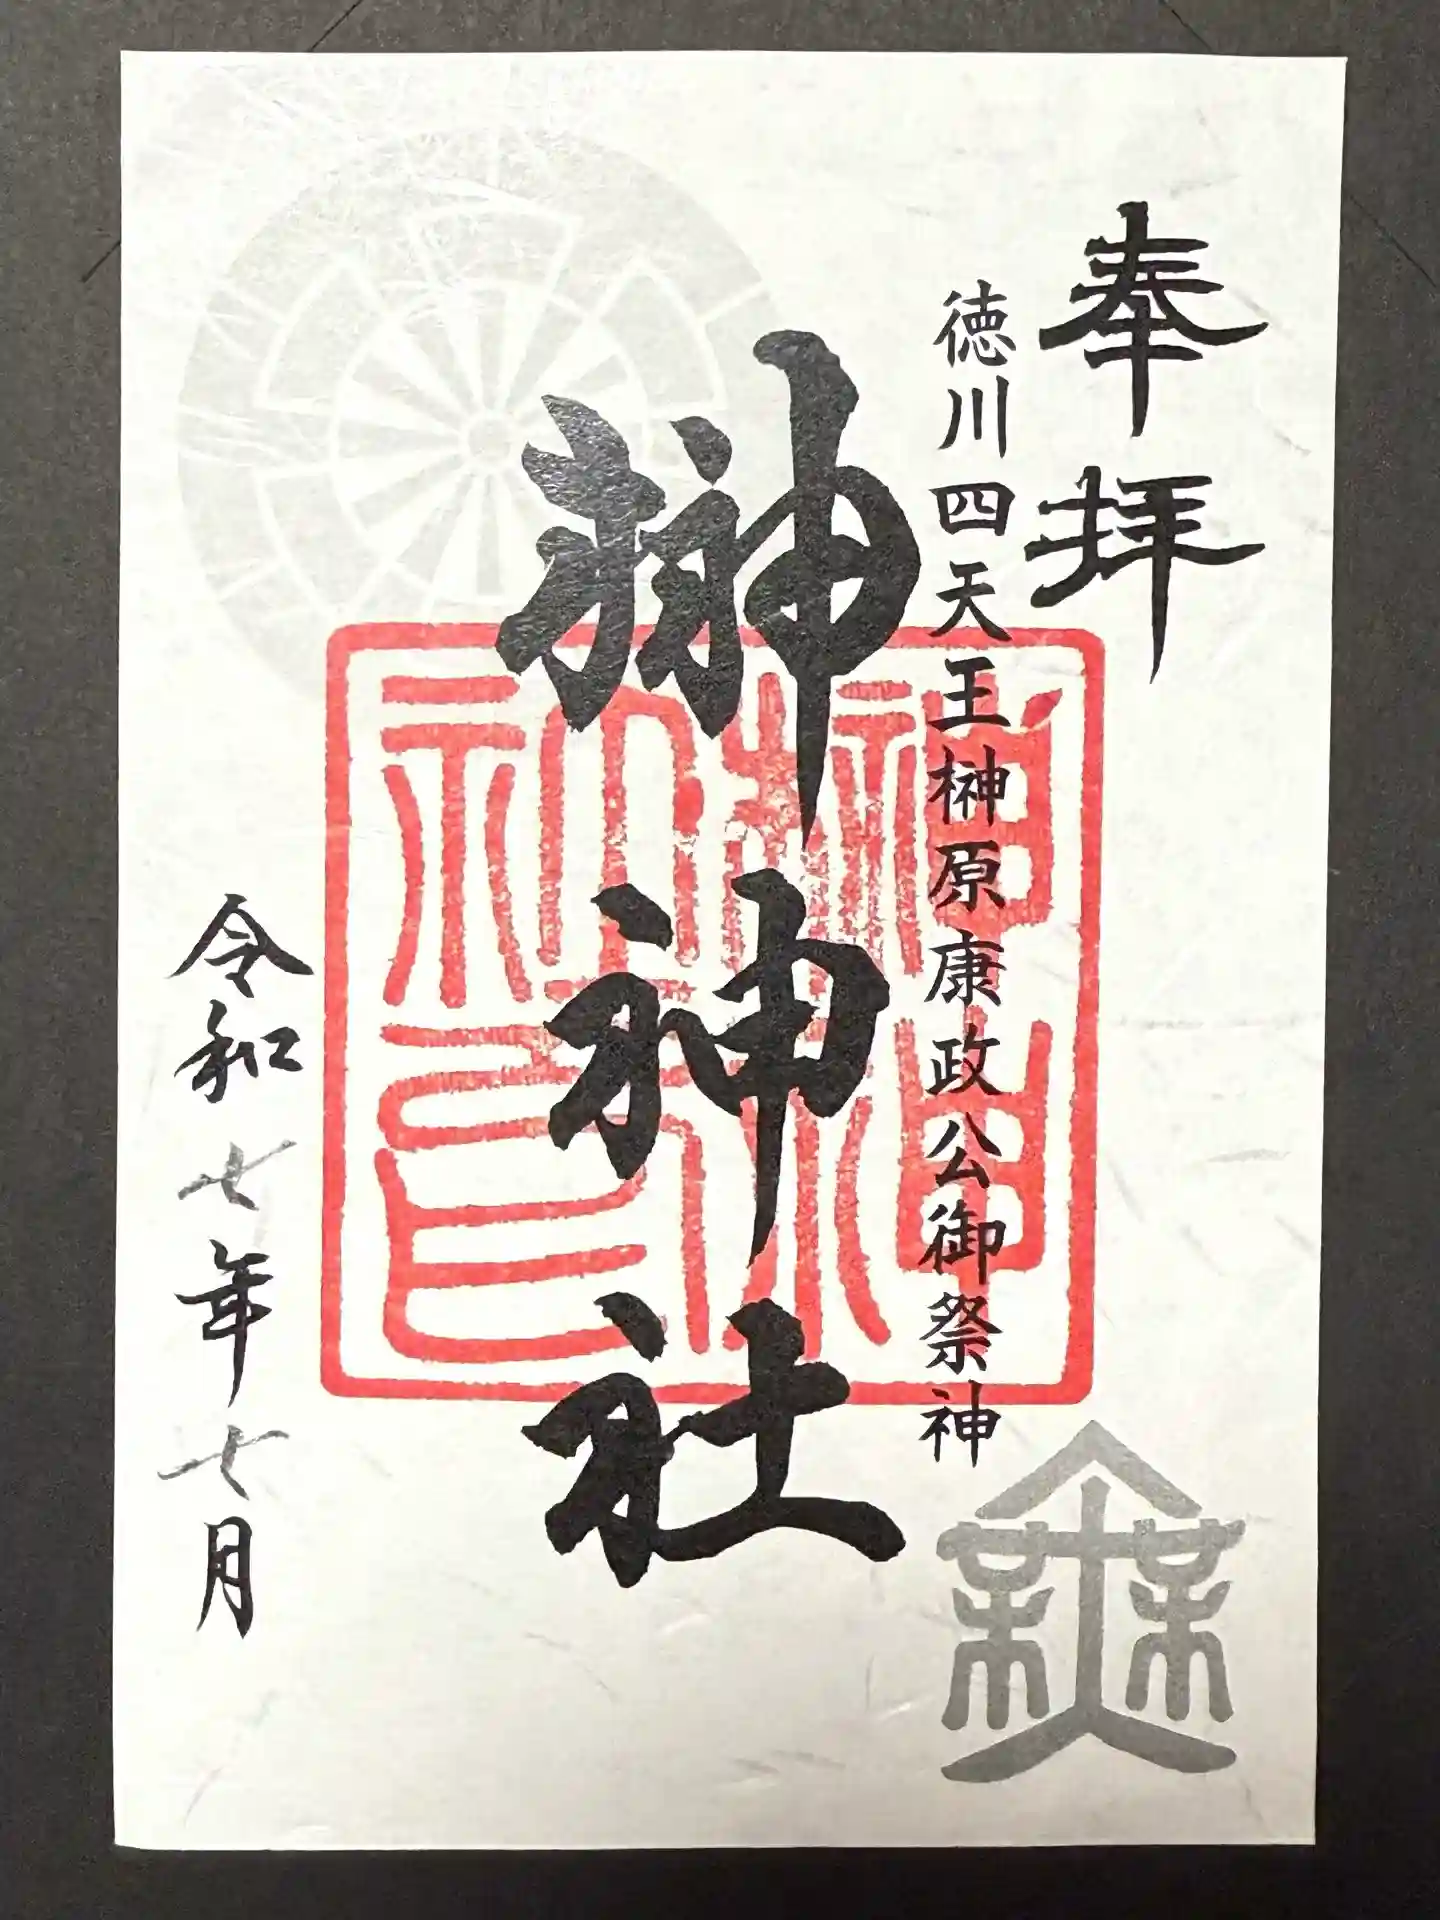 奉拝
徳川四天王榊原康政公御祭神
榊神社
榊神社之印
令和七年七月
無